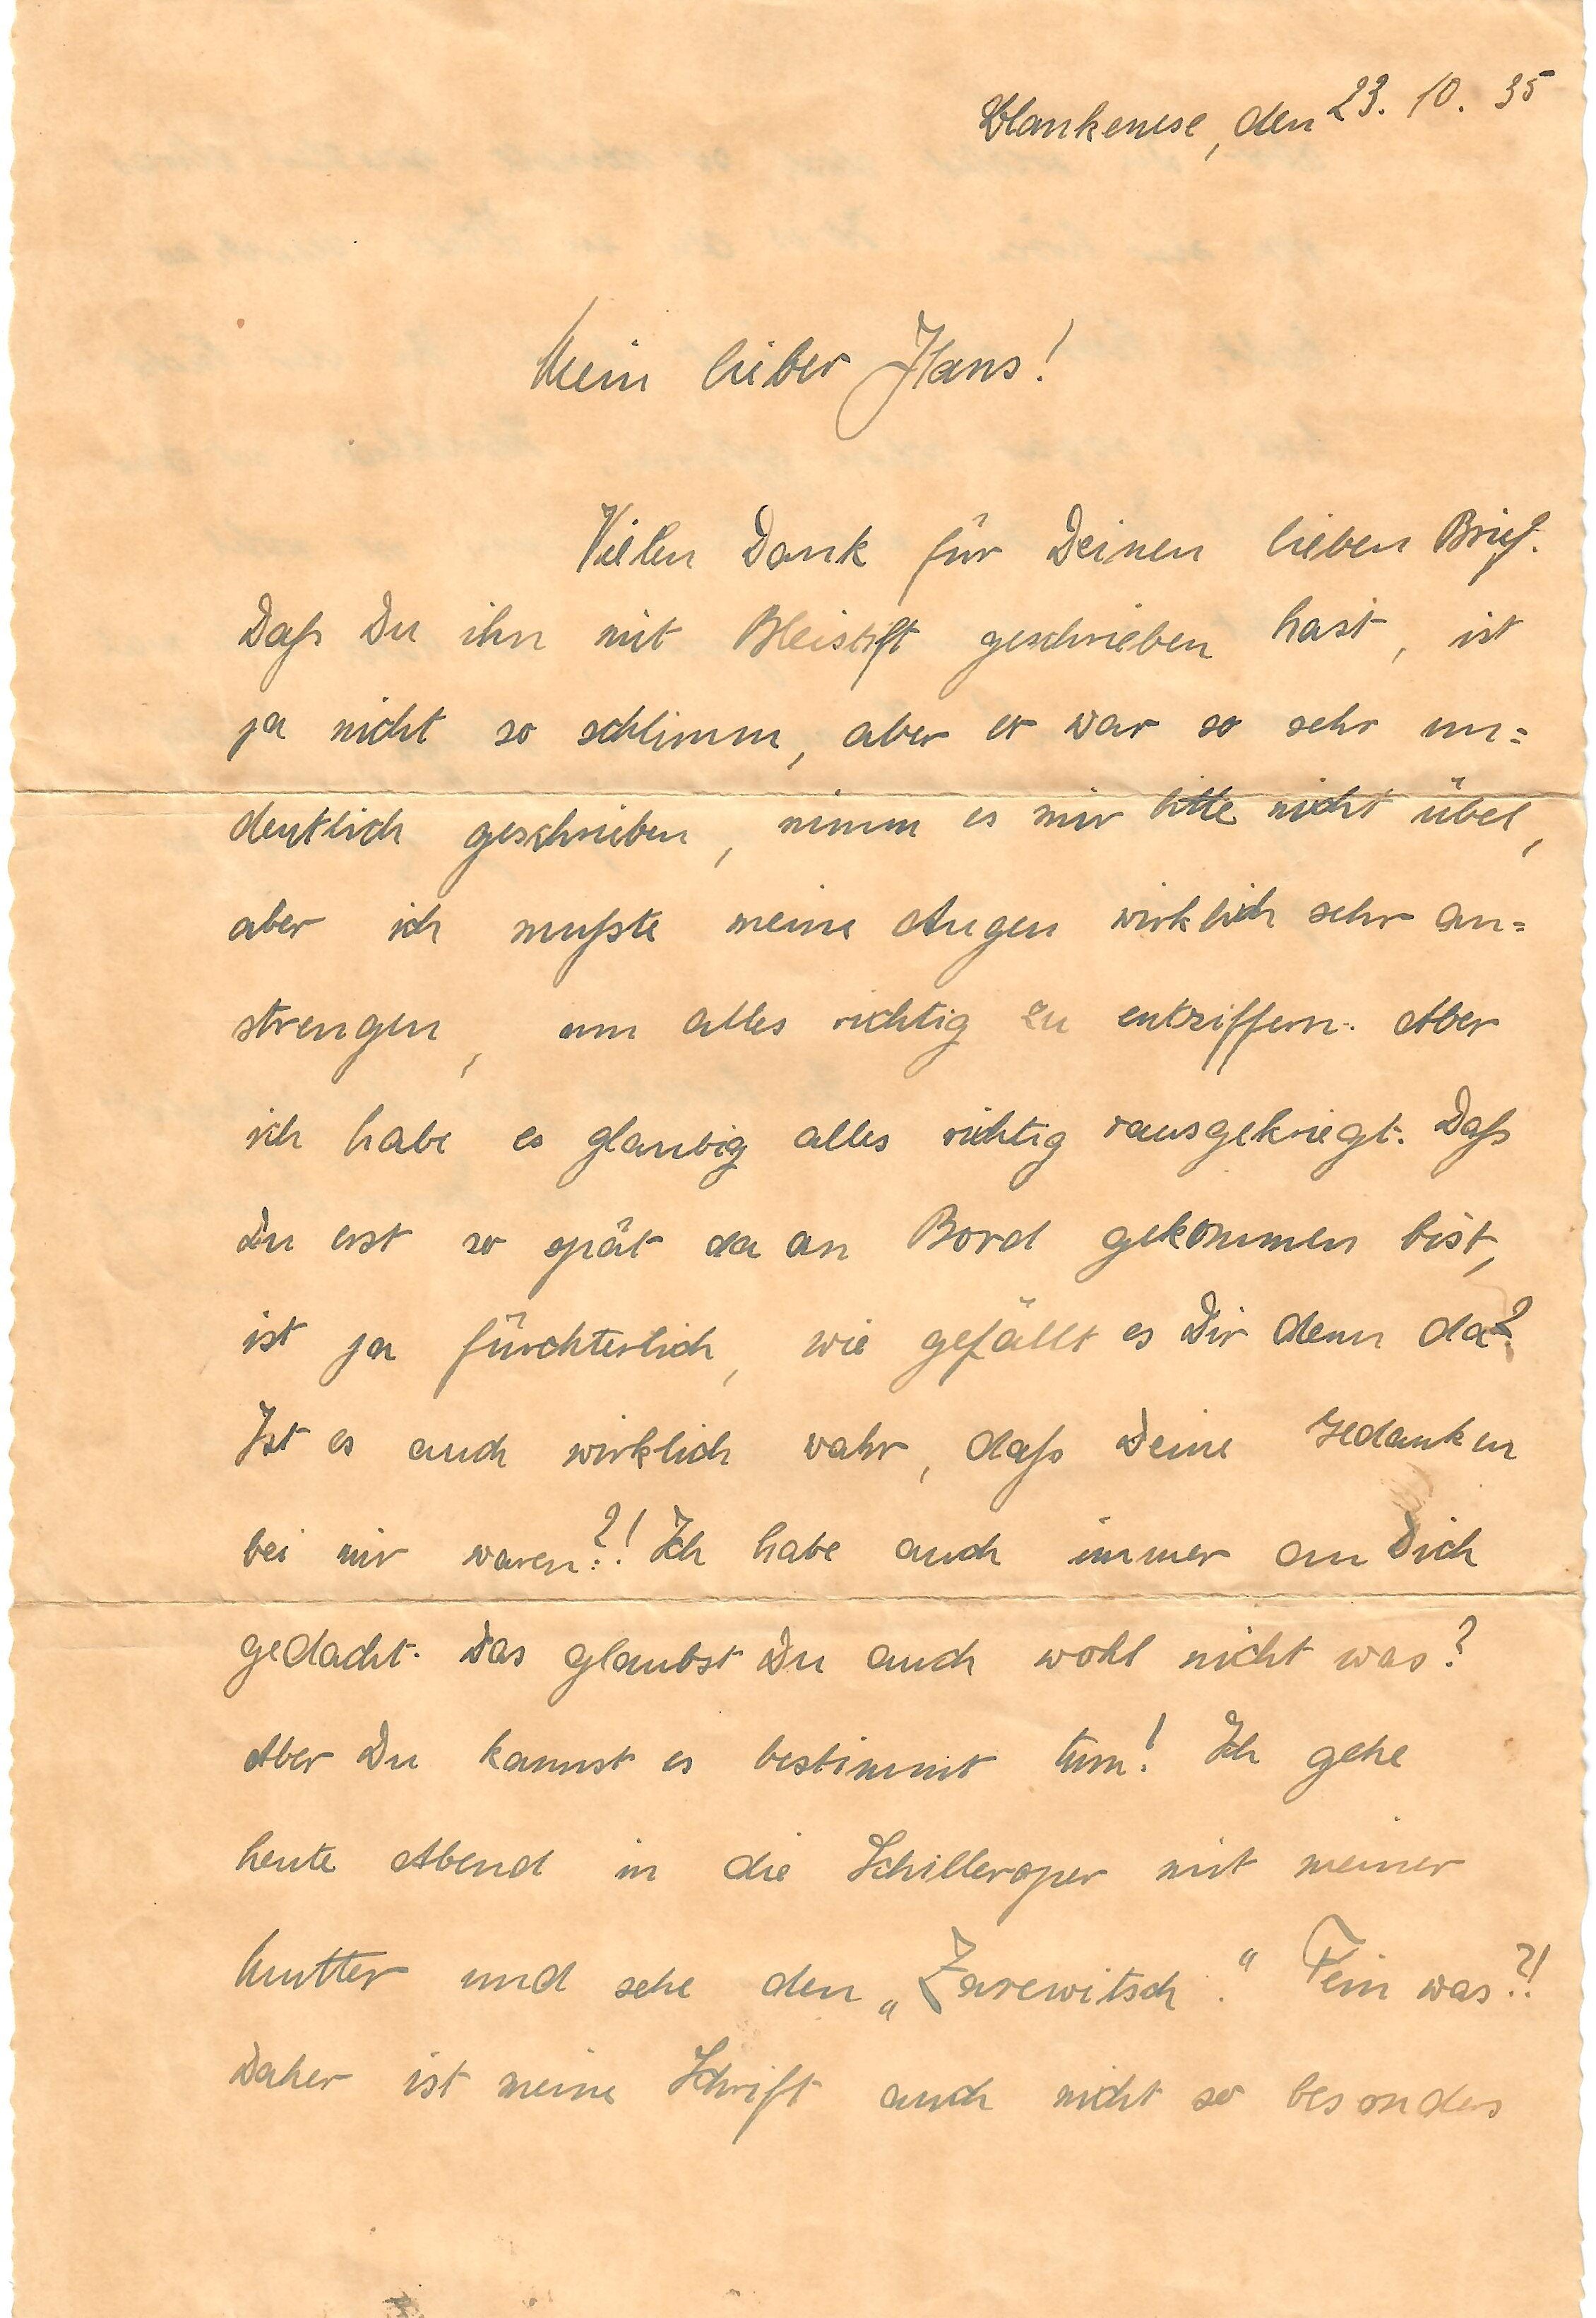 Blankenese, den 23. 10. 35
Mein lieber Hans!
Vielen Dank für Deinen lieben Brief.
Daß Du ihn mit Bleistift geschrieben hast, ist
ja nicht so schlimm, aber er war so sehr un=
deutlich geschrieben, nimm es mir bitte nicht übel,
aber ich mußte meine Augen wirklich sehr an=
strengen, um alles richtig zu entziffern. Aber
ich habe es glaubig alles richtig rausgekriegt. Daß
Du erst so spät da an Bord gekommen bist,
ist ja fürchterlich, wie gefällt es Dir denn da?
Ist es auch wirklich wahr, daß Deine Gedanken
bei mir waren?! Ich habe auch immer an Dich
gedacht. Das glaubst Du auch wohl nicht was?
Aber Du kannst es bestimmt tun! Ich gehe
heute Abend in die Schilleroper mit meiner
Mutter und sehe den „Zarewitsch." Fein was?!
Daher ist meine Schrift auch nicht so besonders